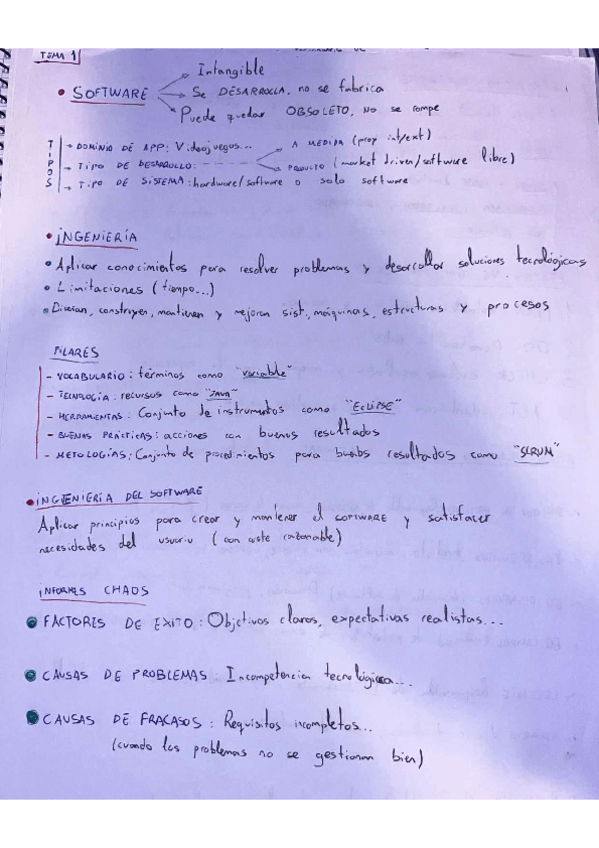 TEMA 1
• SOFTWARE
Intangible
Se DESARROLLA, no se fabrica
Puede quedar OBSOLETO, no se rompe
TIPOS
→ DOMINIO DE APP: Videojuegos...
→ TIPO DE DESARROLLO:
A MEDIDA (proy int/ext)
PRODUCTO (market driven/software libre)
→ TIPO DE SISTEMA: hardware/software o solo software
• INGENIERÍA
• Aplicar conocimientos para resolver problemas y desarrollar soluciones tecnológicas
• Limitaciones (tiempo...)
• Diseñan, construyen, mantienen y mejoran sist., máquinas, estructuras y procesos
PILARES
- VOCABULARIO: términos como "variable"
- TECNOLOGÍA: recursos como "JAVA"
- HERRAMIENTAS: Conjunto de instrumentos como "ECLIPSE"
- BUENAS PRÁCTICAS: acciones con buenos resultados
- METOLOGÍAS: Conjunto de procedimientos para buenos resultados como "SCRUM"
• INGENIERÍA DEL SOFTWARE
Aplicar principios para crear y mantener el SOFTWARE y satisfacer
necesidades del usuario (con coste razonable)
INFORMES CHAOS
• FACTORES DE EXITO: Objetivos claros, expectativas realistas...
• CAUSAS DE PROBLEMAS: Incompetencia tecnológica...
• CAUSAS DE FRACASOS: Requisitos incompletos...
(cuando los problemas no se gestionan bien)